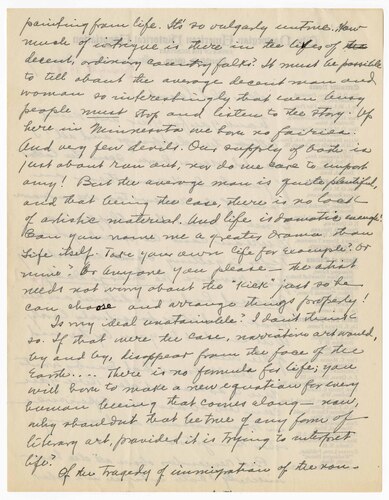 painting from life. It's so vulgarly untrue. How
much of intrigue is there in the lifes of the
decent, ordinary country folks? It must be possible
to tell about the average decent man and
woman so interestingly that even busy
people must stop and listen to the story. Up
here in Minnesota we have no fairies.
And very few devils. Our supply of both is
just about run out, nor do we care to import
any! But the average man is quite plentiful,
and that being the case, there is no lack
of artistic material. And life is dramatic enough!
Can you name me a greater drama than
Life itself. Take your own life for example? Or
mine? Or anyone you please — the artist
needs not worry about the "kick" just so he
can choose and arrange things properly!
Is my ideal unatainable? I don't think
so. If that were the case, narrative art would,
by and by, disappear from the face of the
Earth.... There is no formula for life; you
will have to make a new equation for every
human being that comes along — now,
why shouldn't that be true of any form of
literary art, provided it is trying to interpret
life?
Of the tragedy of immigration of the non-